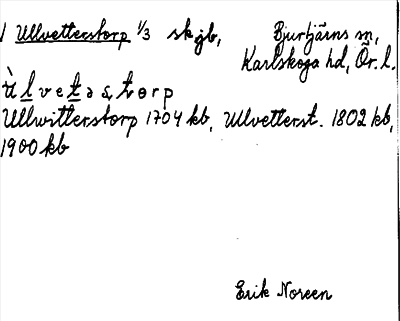 1 Ullvetterstorp 1/3 sk jb, Bjurtjärns sn,
Karlskoga hd, Ör. l.
ù l v e t ə ş t ɵ r p
Ullwitterstorp 1704 kb, Ullvetterst. 1802 kb,
1900 kb
Erik Noreen